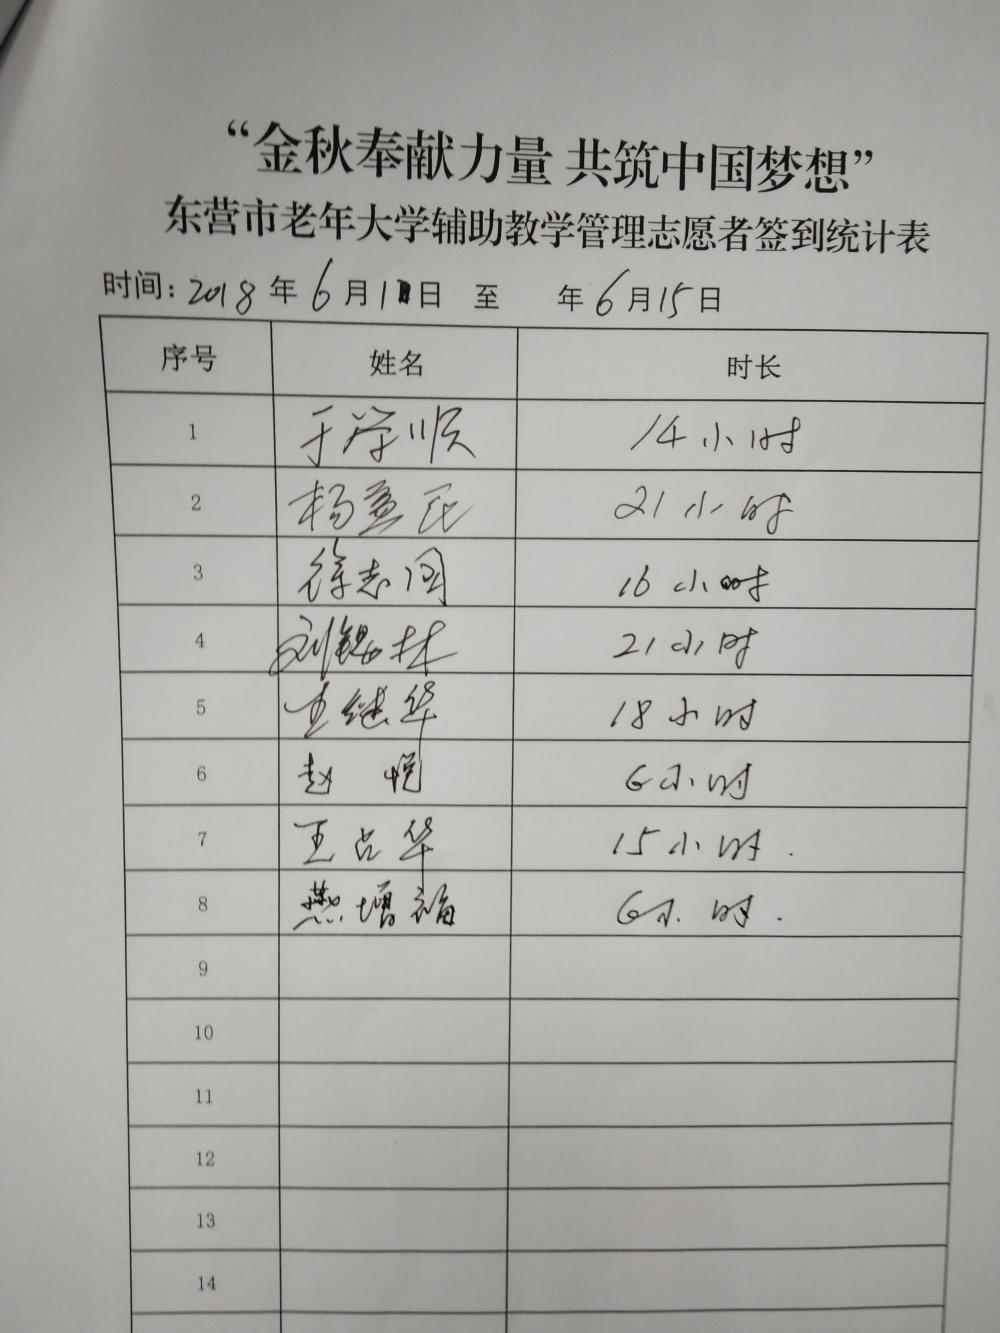 “金秋奉献力量 共筑中国梦想”
东营市老年大学辅助教学管理志愿者签到统计表
时间: 2018 年 6 月 1 日 至 年 6 月 15 日
序号 姓名 时长
1 于学顺 14 小时
2 杨意民 21 小时
3 徐志国 16 小时
4 刘锡林 21 小时
5 王继华 18 小时
6 赵悦 6 小时
7 王占华 15 小时.
8 燕增福 6 小时.
9
10
11
12
13
14